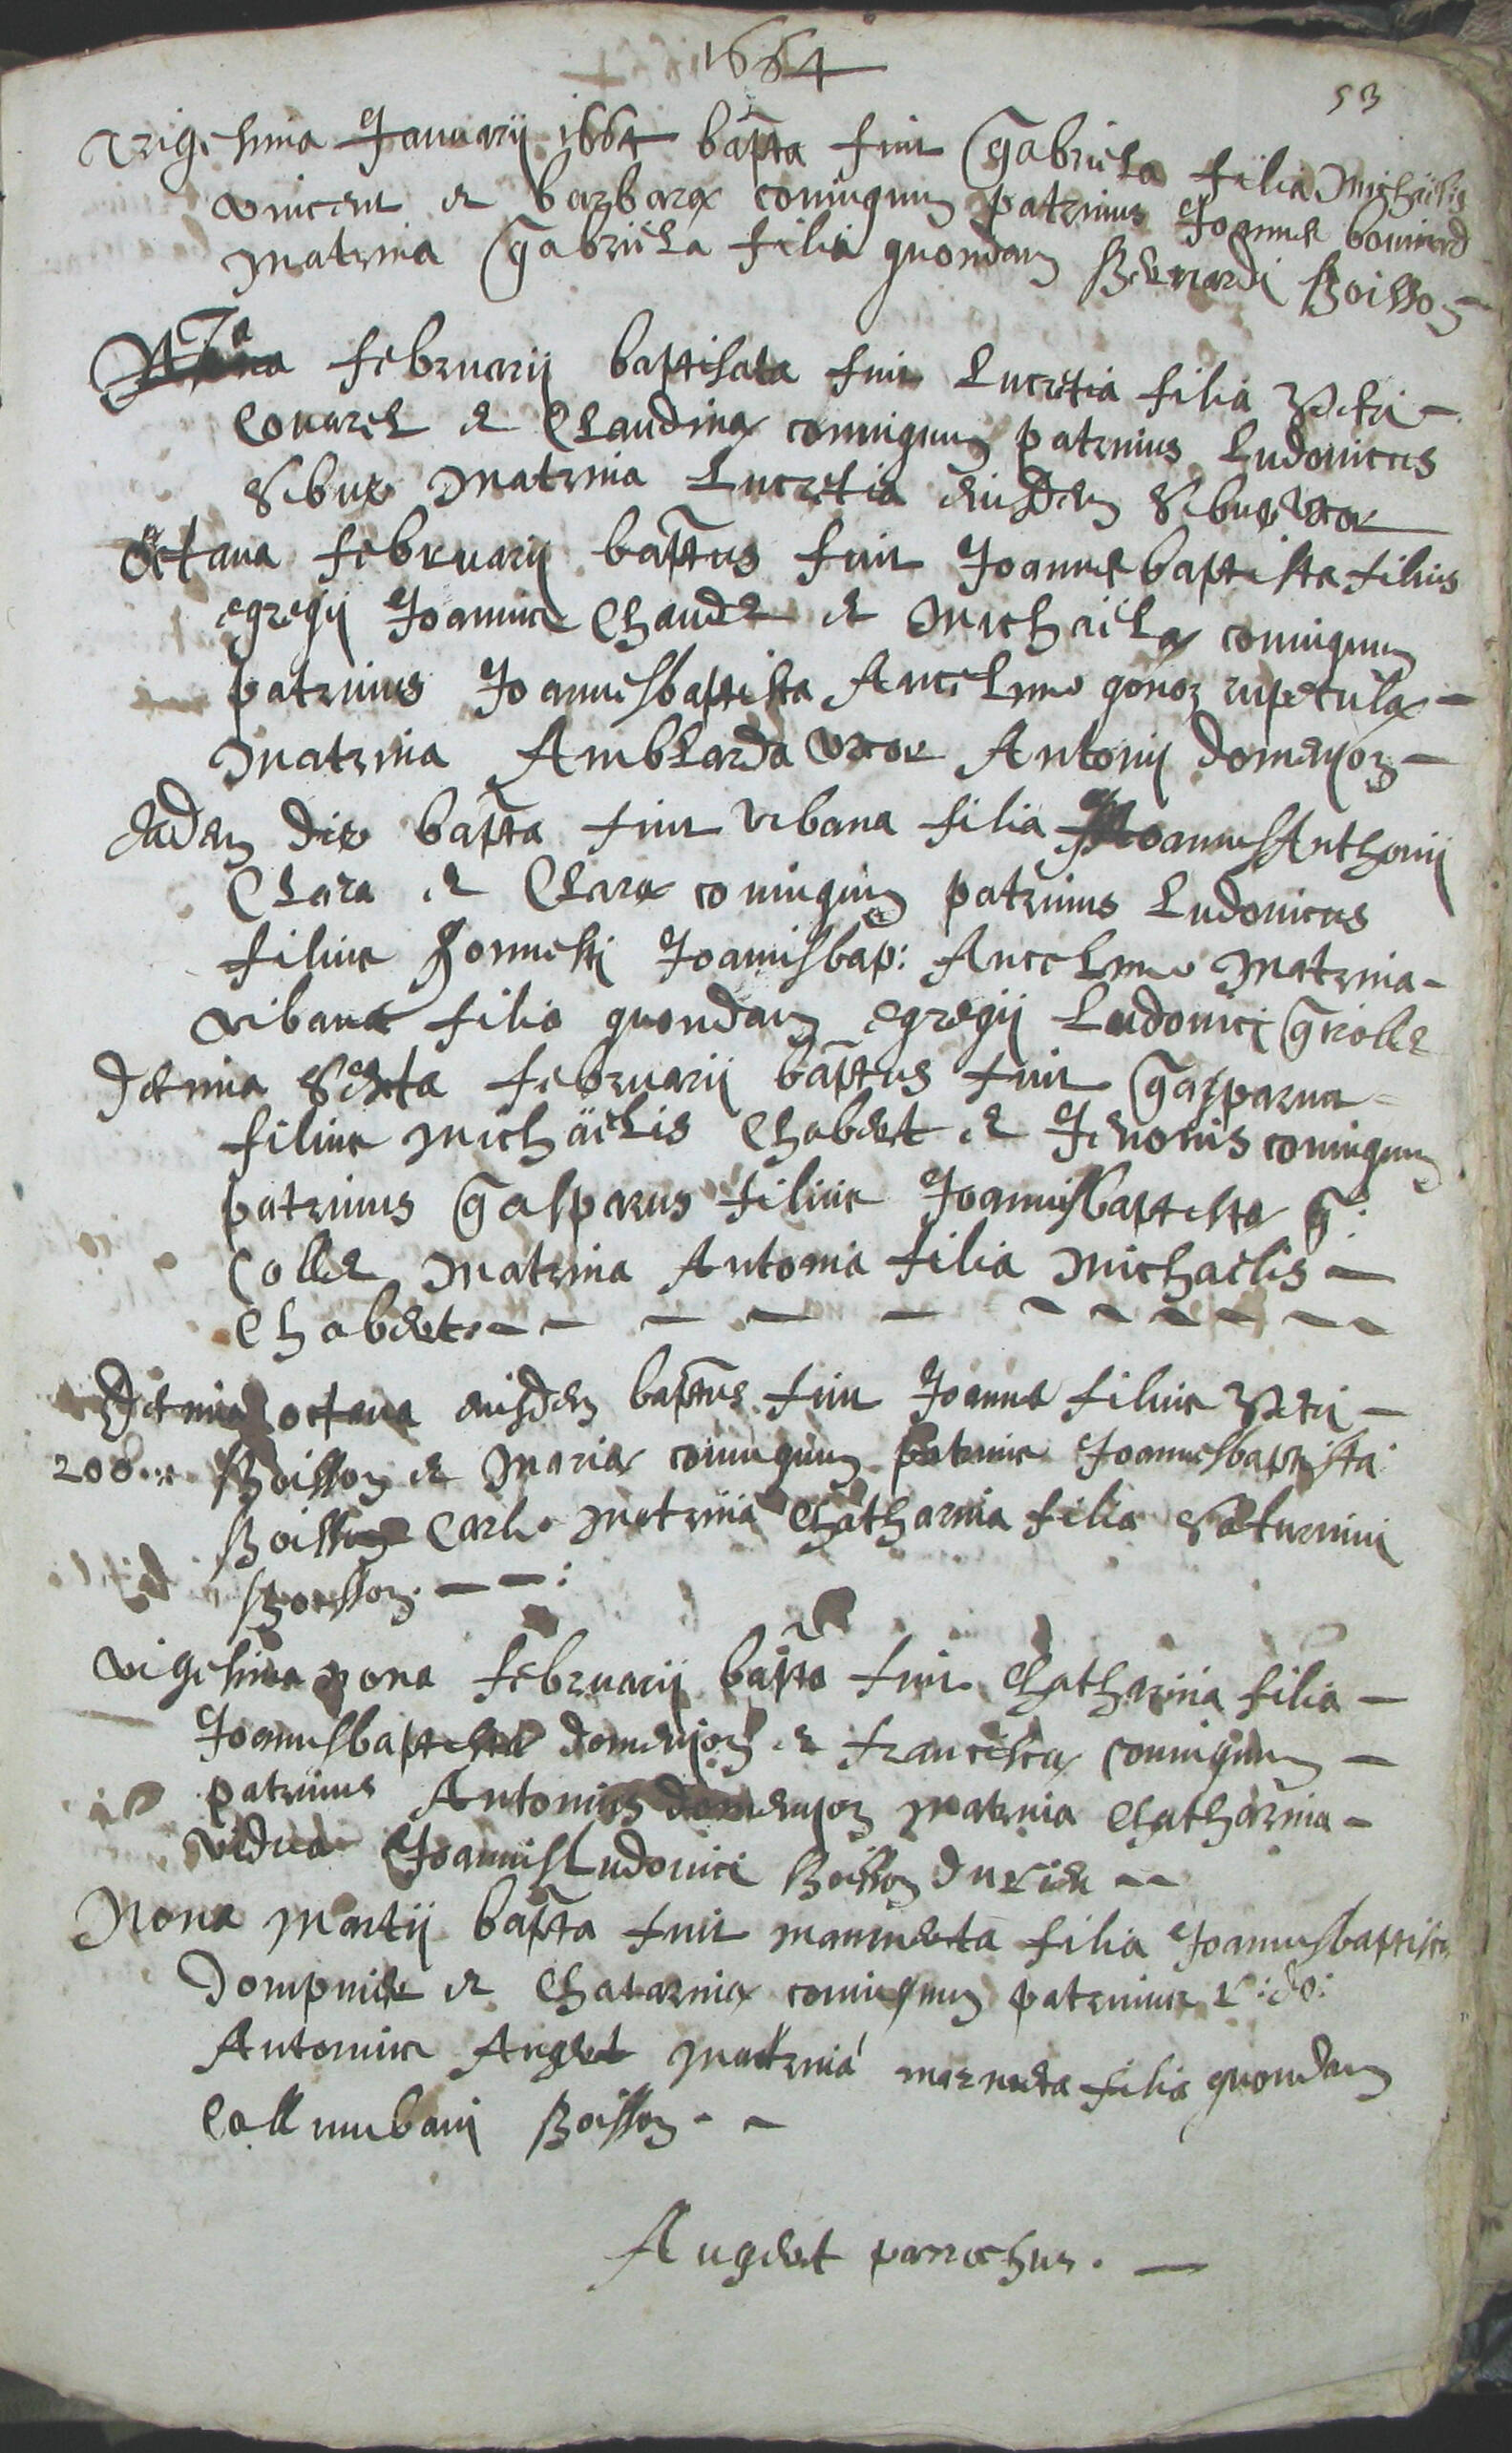 1664
53
Trigesima Januarij 1664 bapta fuit Gabriela filia Michaelis
Vincent et barbaræ coniugum patrinus Joannes
Matrina Gabriela filia quondam Bernardi Boisson
7a februarij baptisata fuit Lucretia filia Petri
Couaret et Claudinæ coniugum patrinus Ludouicus
Sibux Matrina Lucretia eiusdem Sibux Vxor
Octaua februarij baptus fuit Joannesbaptista filius
egregij Joannis Chaude et Michaelæ coniugum
patrinus Joannesbaptista Ancelmo
Matrina Amblarda Vxor Antonij domeyon
Eadem die bapta fuit Vrbana filia JoannisAnthonij
Clara et Claræ coniugum patrinus Ludouicus
filius honesti Joannisbap: Ancelmo Matrina
Vrbana filia quondam egregij Ludouici Grolle
Decima Sexta februarij baptus fuit Gasparus
filius Michäelis Chabert et Jenonis coniugum
patrinus Gasparus filius Joannisbaptistæ G:
Colle Matrina Antonia filia Michaelis
Chabert
Decima octaua eiusdem baptus fuit Joannes filius Petri
200 Boisson et Mariæ coniugum patrinus Joannesbaptista
Boisson Carle Matrina Chatharina filia Saturnini
Boisson
Vigesima nona februarij bapta fuit Chatharina filia
Joannisbaptistæ domeyon et francisca coniugum
patrinus Antonius domeyon Matrina Chatharina
Vidua JoannisLudouici Boisson
Nona Martij bapta fuit filia Joannisbaptistæ
Dompnier et Chatarinæ coniugum patrinus R: do:
Antonius Auget Matrina filia quondam
Boisson
Auget parrochus.